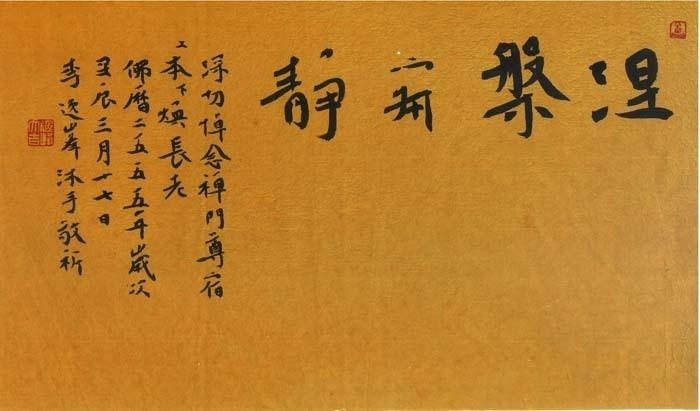 涅槃寂靜
深切悼念禪門尊宿
上本下煥長老
佛曆二五五五年歲次
壬辰三月十七日
李逸峰沐手敬祈